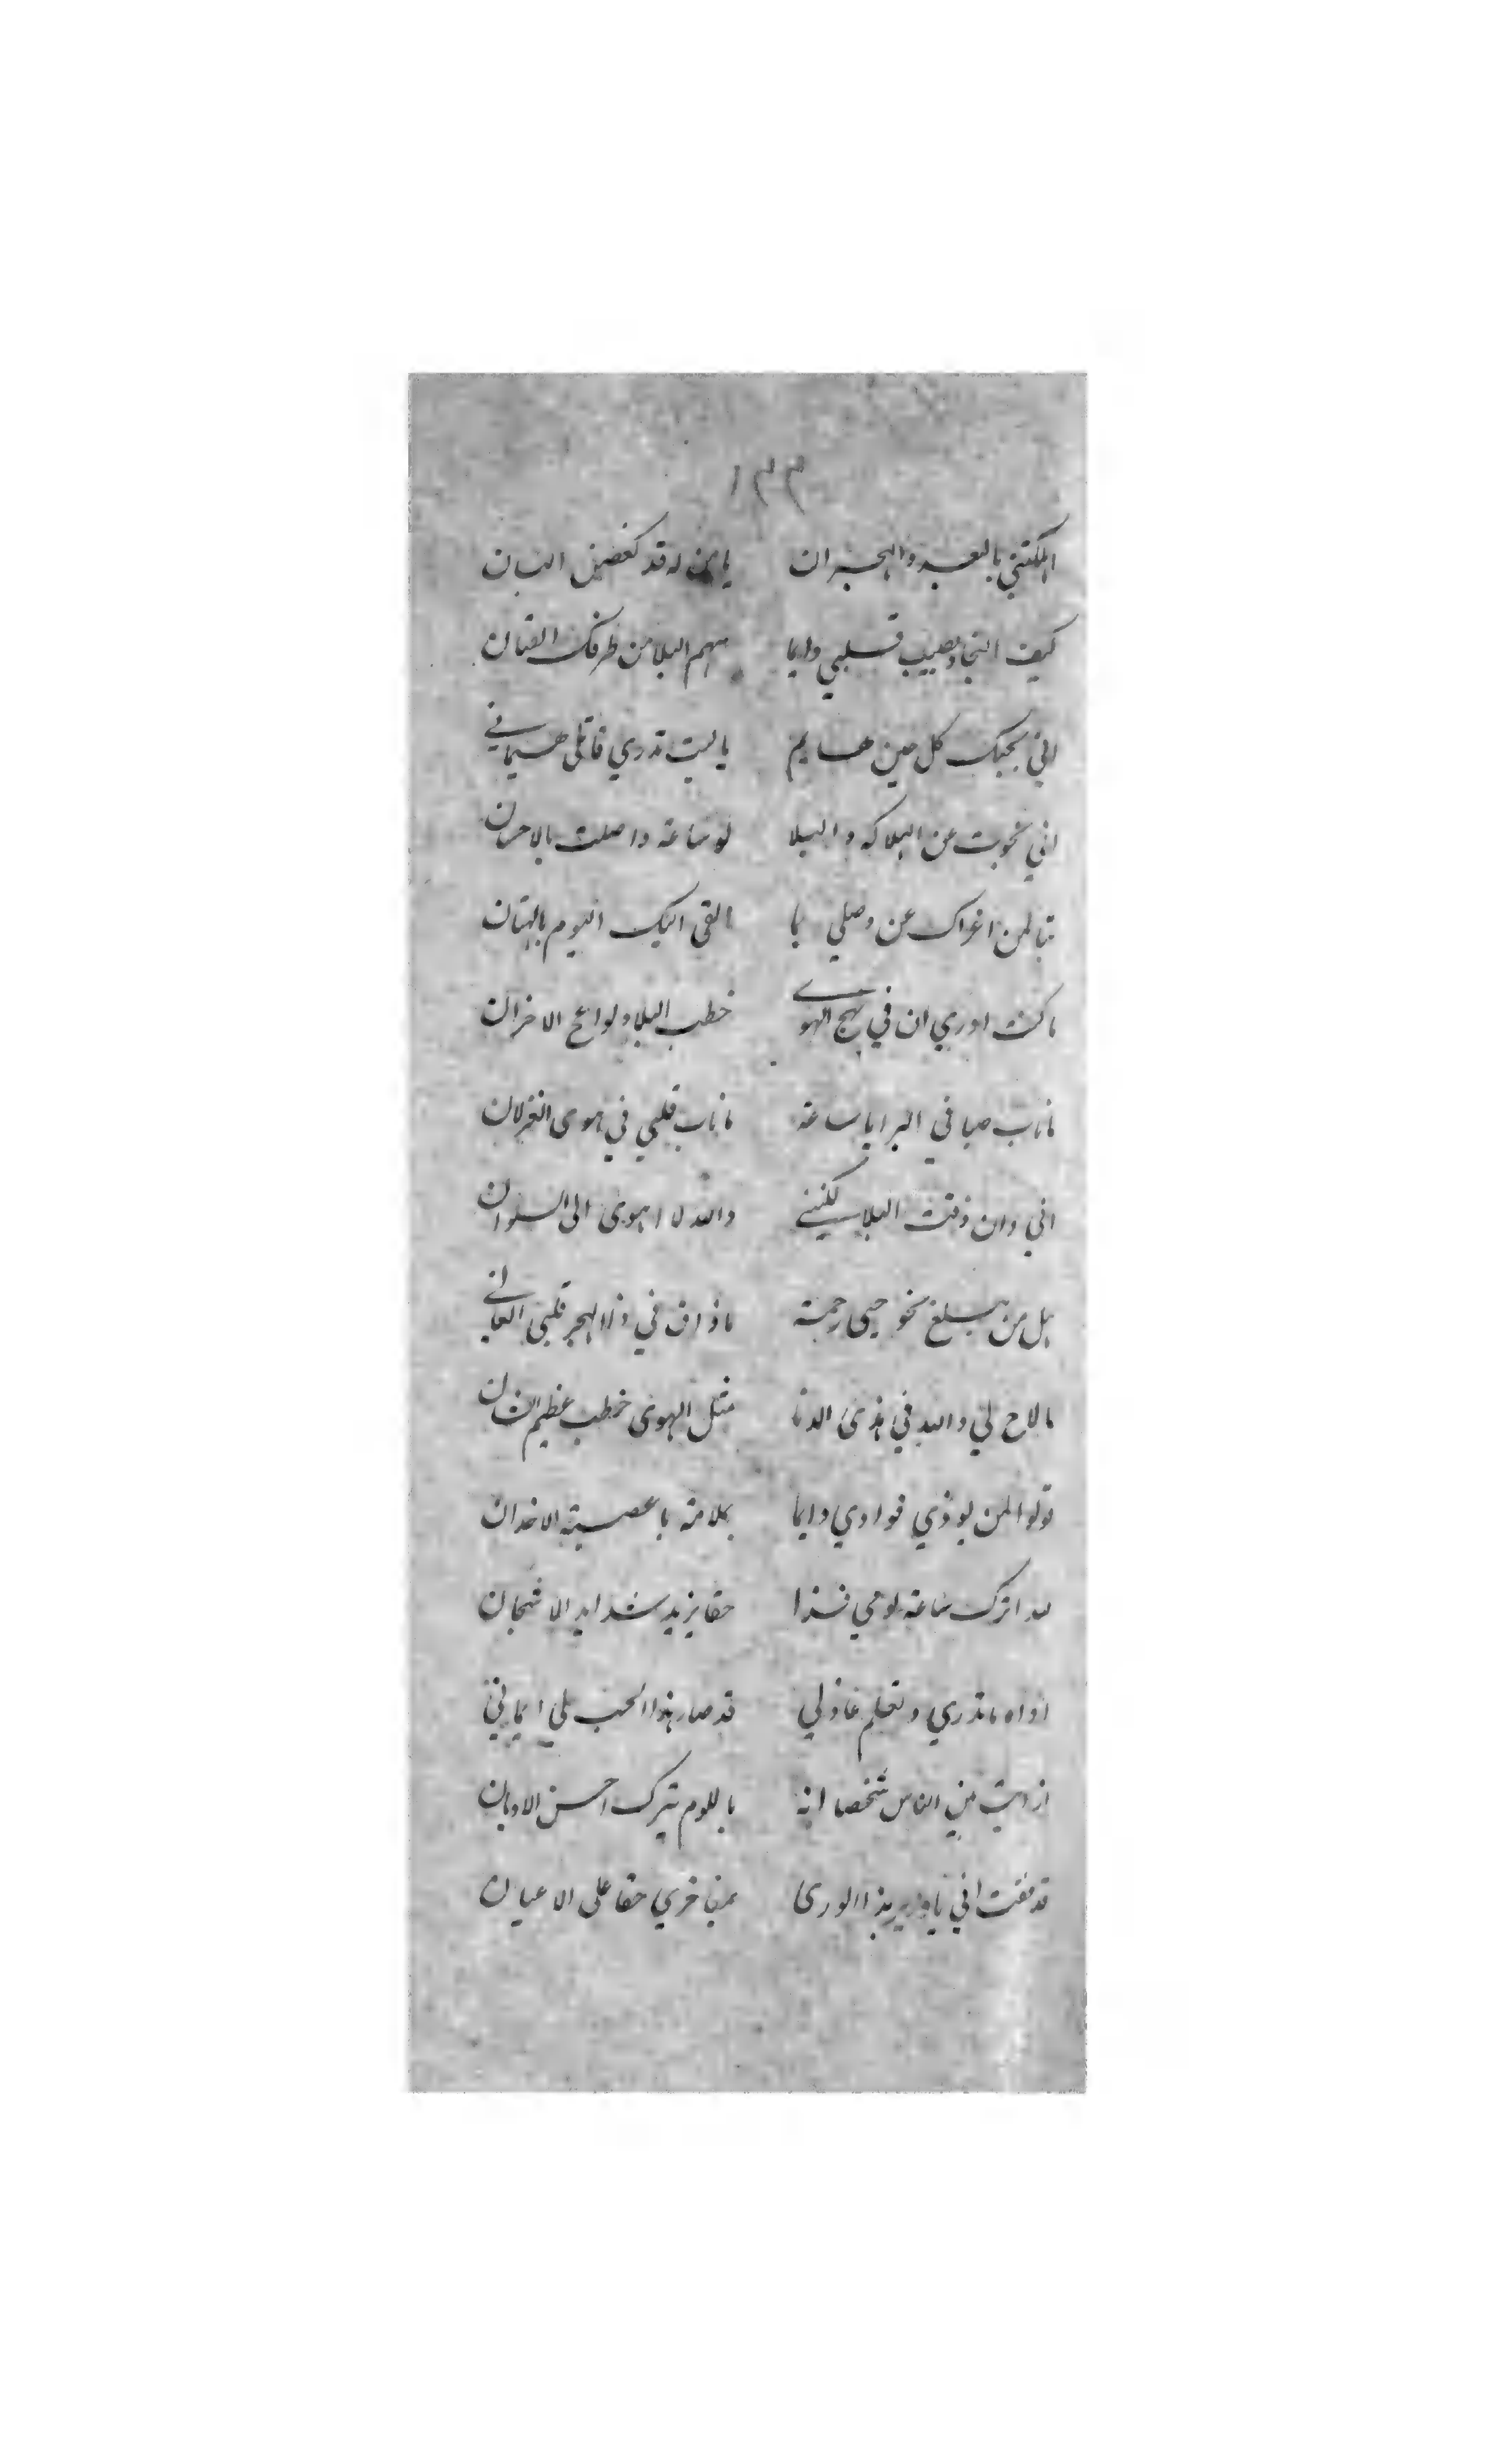 ١٣٣
اهلكتني بالبعد والهجران يا من له قد كغصن البان
كيف النجا ويصيب قلبي دايما سهم البلا من طرفك الفتان
اني بحبك كل حين هايم يا ليت تدري قاتلي هيماني
اني نجوت عن الهلاكه والبلا لو ساعة واصلت بالاحسان
تبا لمن اغراك عن وصلي بما القى اليك اليوم بالبهتان
ما كنت ادري ان في نهج الهوى خطب البلا ولواعج الاحزان
ما ناب صبا في البرايا ساعة ما ناب قلبي في هوى الغزلان
اني وان ذقت البلا لكنني والله لا اهوى الى السلوان
هل من يبلغ نحو حبي رحمة ما ذاق في ذا الهجر قلبي العاني
ما لاح لي والله في هذى الدنا مثل الهوى خطب عظيم الشان
قولوا لمن يوذي فوادي دايما بملامة يا عصبة الاخدان
لله اترك ساعة لومي فذا حقا يزيد شدايد الاشجان
اواه ما تدري وتعلم عاذلي قد صار هذا الحب لي ايماني
ارايت من الناس شخصا انه باللوم يترك احسن الاديان
قد فقت اني يا وزير هذا الورى بمفاخري حقا على الاعيان